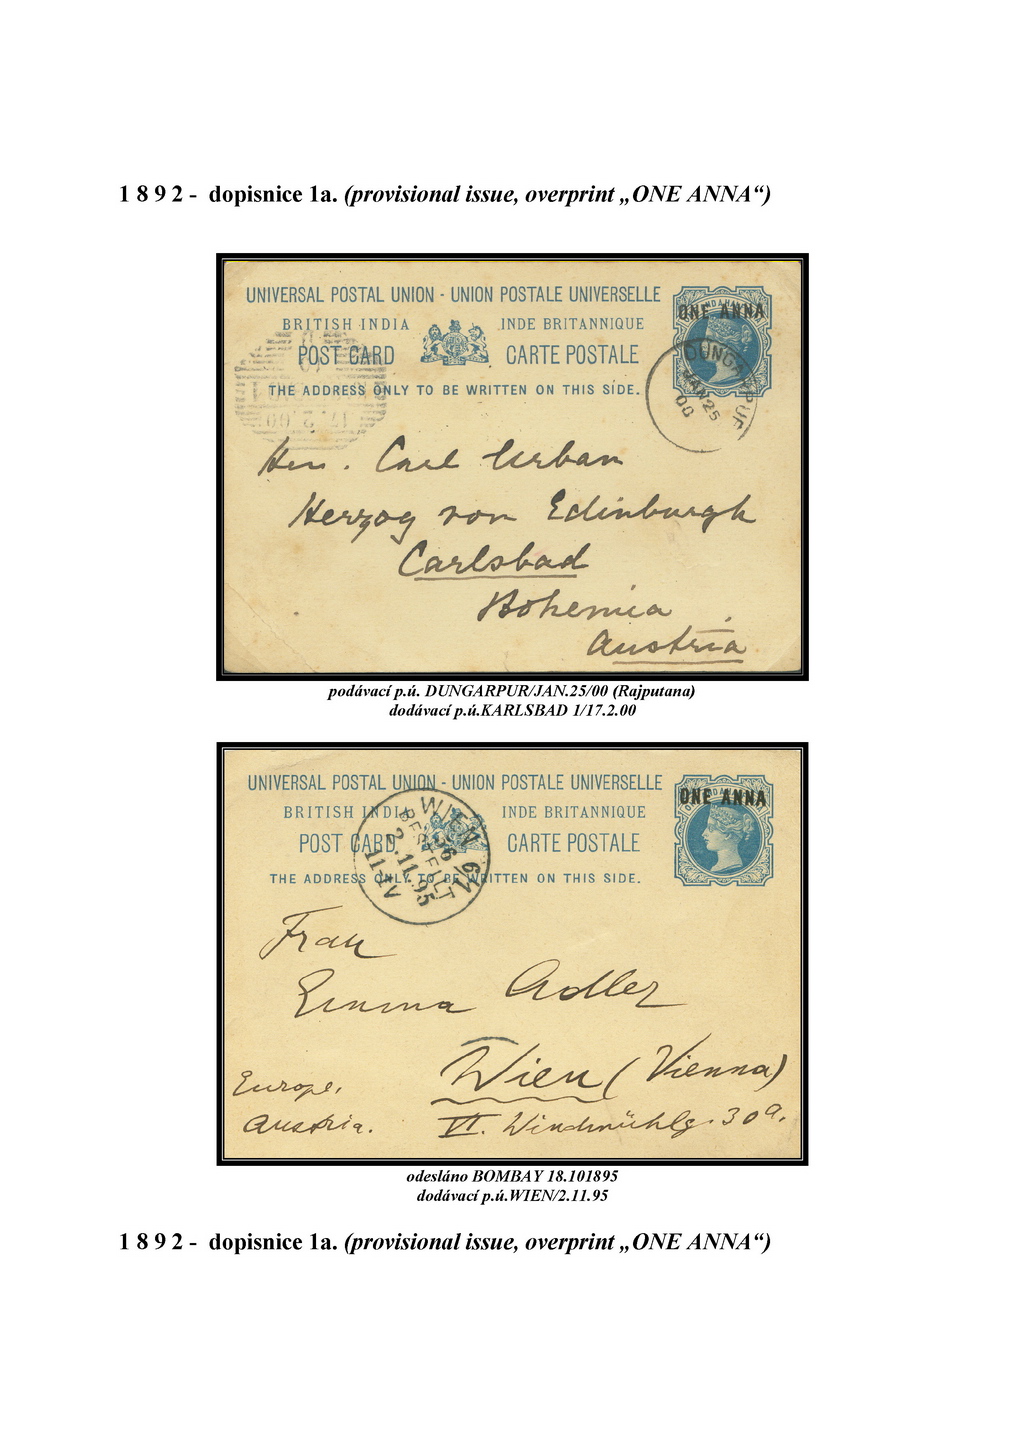 1 8 9 2 - dopisnice 1a. (provisional issue, overprint „ONE ANNA“)
UNIVERSAL POSTAL UNION - UNION POSTALE UNIVERSELLE
BRITISH INDIA INDE BRITANNIQUE
POST CARD CARTE POSTALE
THE ADDRESS ONLY TO BE WRITTEN ON THIS SIDE.
ONE ANNA
DUNGARPUR
JAN 25
00
17.2.00
Herrn. Carl Urban
Herzog von Edinburgh
Carlsbad
Bohemia
Austria
podávací p.ú. DUNGARPUR/JAN.25/00 (Rajputana)
dodávací p.ú.KARLSBAD 1/17.2.00
UNIVERSAL POSTAL UNION - UNION POSTALE UNIVERSELLE
BRITISH INDIA INDE BRITANNIQUE
POST CARD CARTE POSTALE
THE ADDRESS ONLY TO BE WRITTEN ON THIS SIDE.
ONE ANNA
WIEN
BESTELLT
2.11.95
Frau
Emma Adler
Wien (Vienna)
Europe,
Austria.
VI. Windmühlg. 30a.
odesláno BOMBAY 18.101895
dodávací p.ú.WIEN/2.11.95
1 8 9 2 - dopisnice 1a. (provisional issue, overprint „ONE ANNA“)